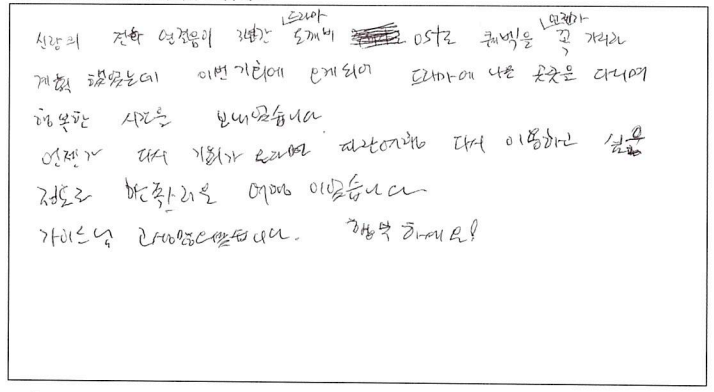 신랑의 전화 연결음이 3년간 드라마 도깨비 OST로 퀘벡을 언젠가 꼭, 가리라
계획 했었는데 이번 기회에 오게되어 드라마에 나온 곳곳을 다니며
행복한 시간을 보내었습니다
언젠가 다시 기회가 오라면 파란여행 다시 이용하고 싶을
정도로 만족스러운 여행 이었습니다
가이드님 고생많으셨습니다. 행복 하세요!